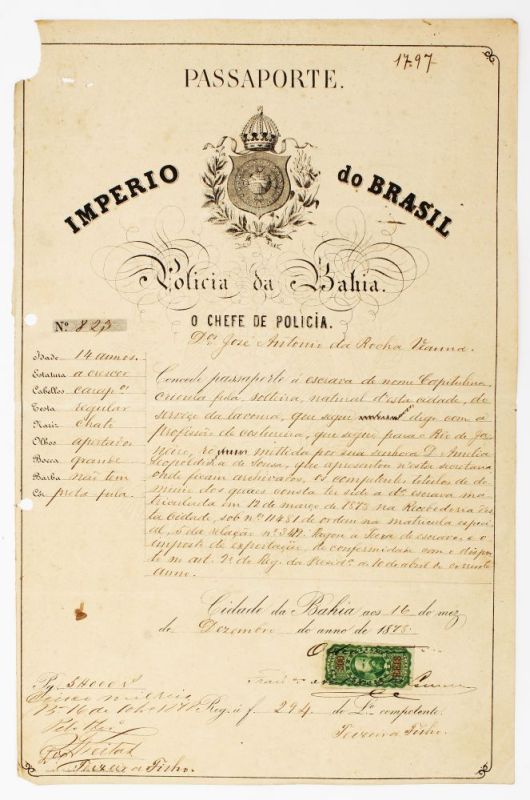 1797
PASSAPORTE.
IMPERIO do BRASIL
Policia da Bahia.
O CHEFE DE POLICÍA.
Nº 823
Dor José Antonio da Rocha Vianna.
Idade 14 annos.
Estatura a crescer
Cabellos carapos
Testa regular
Nariz chato
Olhos apertados
Bocca grande
Barba não tem
Côr preta fula.
Concede passaporte á escrava de nome Capitulina,
crioula fula, solteira, natural d'esta cidade, do
serviço da lavoura, que segue digo com a
profissão de costureira, que segue para o Rio de Ja
neiro, remettida por sua senhora D. Amelia
Leopoldina de Sousa, que apresentou n'esta secretaria
onde ficam archivados, os competentes titulos de do
minio dos quaes consta ter sido a dta escrava ma
triculada em 12 de março de 1873 na Recebedoria des
ta Cidade, sob nº 11481 de ordem na matricula especi
al, da relação nº Pagou a taxa de escravos e o
imposto de exportação, de conformidade com o dispos
to no art. 2º do Reg. da Presidª de 10 de abril do corrente
anno.
Cidade da Bahia aos 16 do mez
de Dezembro do anno de 1875.
200 REIS
Reg. á f 294 do Lº competente.
Teixeira Filho.
Pg.
16 de
Freitas
Teixeira Filho.